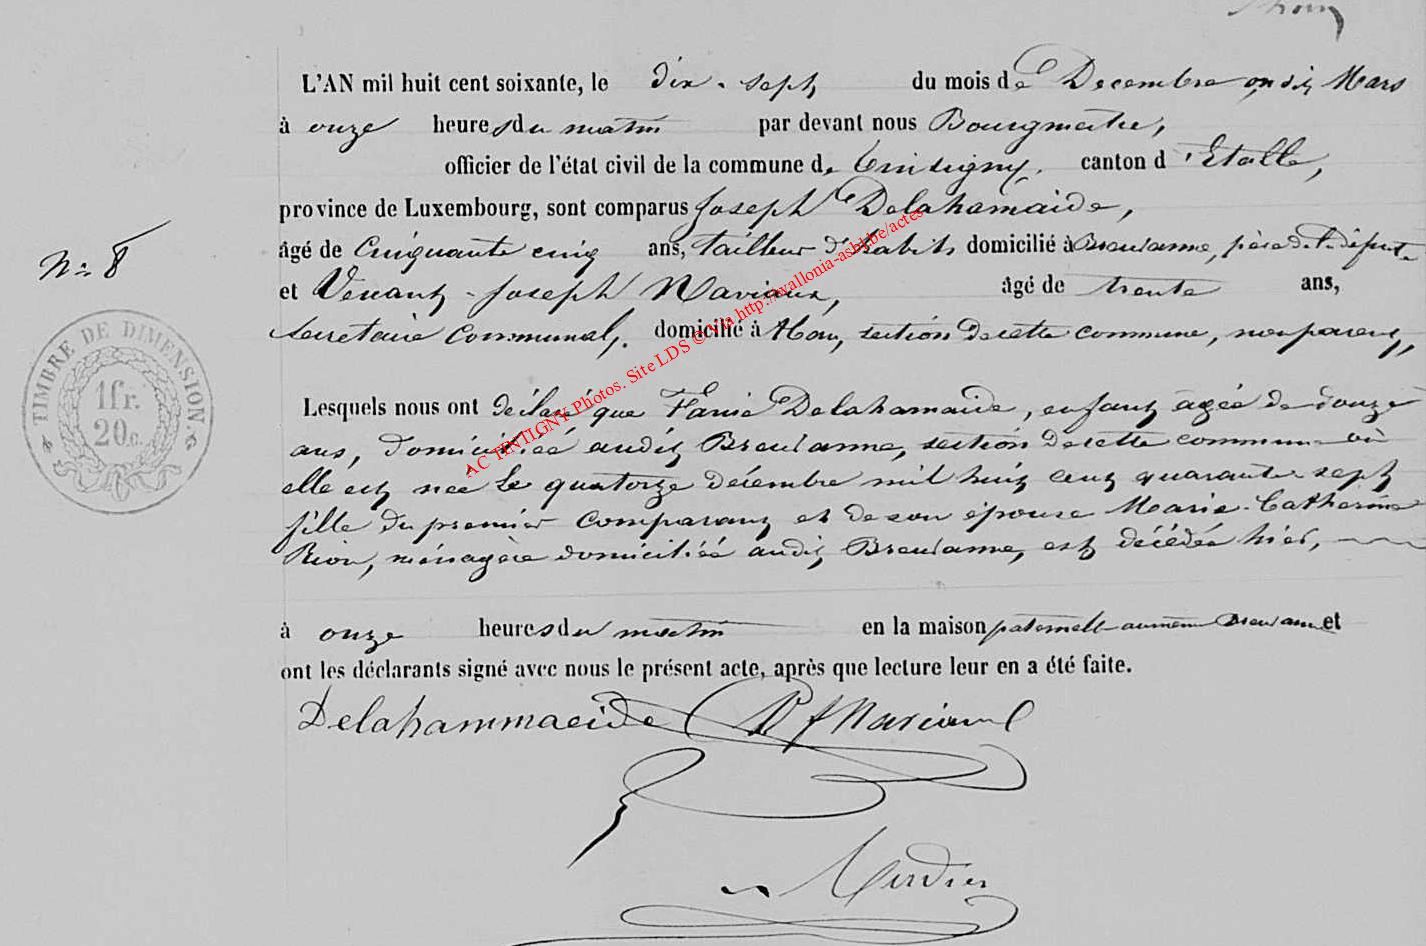 L'AN mil huit cent soixante, le dix-sept du mois de Decembre on dit Mars
à onze heures du matin par devant nous Bourgmestre,
officier de l'état civil de la commune de Tintigny, canton d'Etalle,
province de Luxembourg, sont comparus Joseph Delahamaide,
âgé de Cinquante cinq ans, tailleur d'habits domicilié à Breuvanne, père de la défunte
et Venant-Joseph Naviaux, âgé de trente ans,
Secretaire Communal, domicilié à Han, section de cette commune, non parent,
N° 8
TIMBRE DE DIMENSION.
1 fr.
20 c.
Lesquels nous ont déclaré que Fanie Delahamaide, enfant agée de douze
ans, domiciliée audit Breuvanne, section de cette commune où
elle est née le quatorze décembre mil huit cent quarante sept
fille du premier comparant et de son épouse Marie-Catherine
Rion, ménagère domiciliée audit Breuvanne, est décédée hier,
à onze heures du matin en la maison paternelle au même Breuvanne et
ont les déclarants signé avec nous le présent acte, après que lecture leur en a été faite.
Delahammaide
AC TINTIGNY Photos. Site LDS © Via http://wallonia-asbl.be/actes